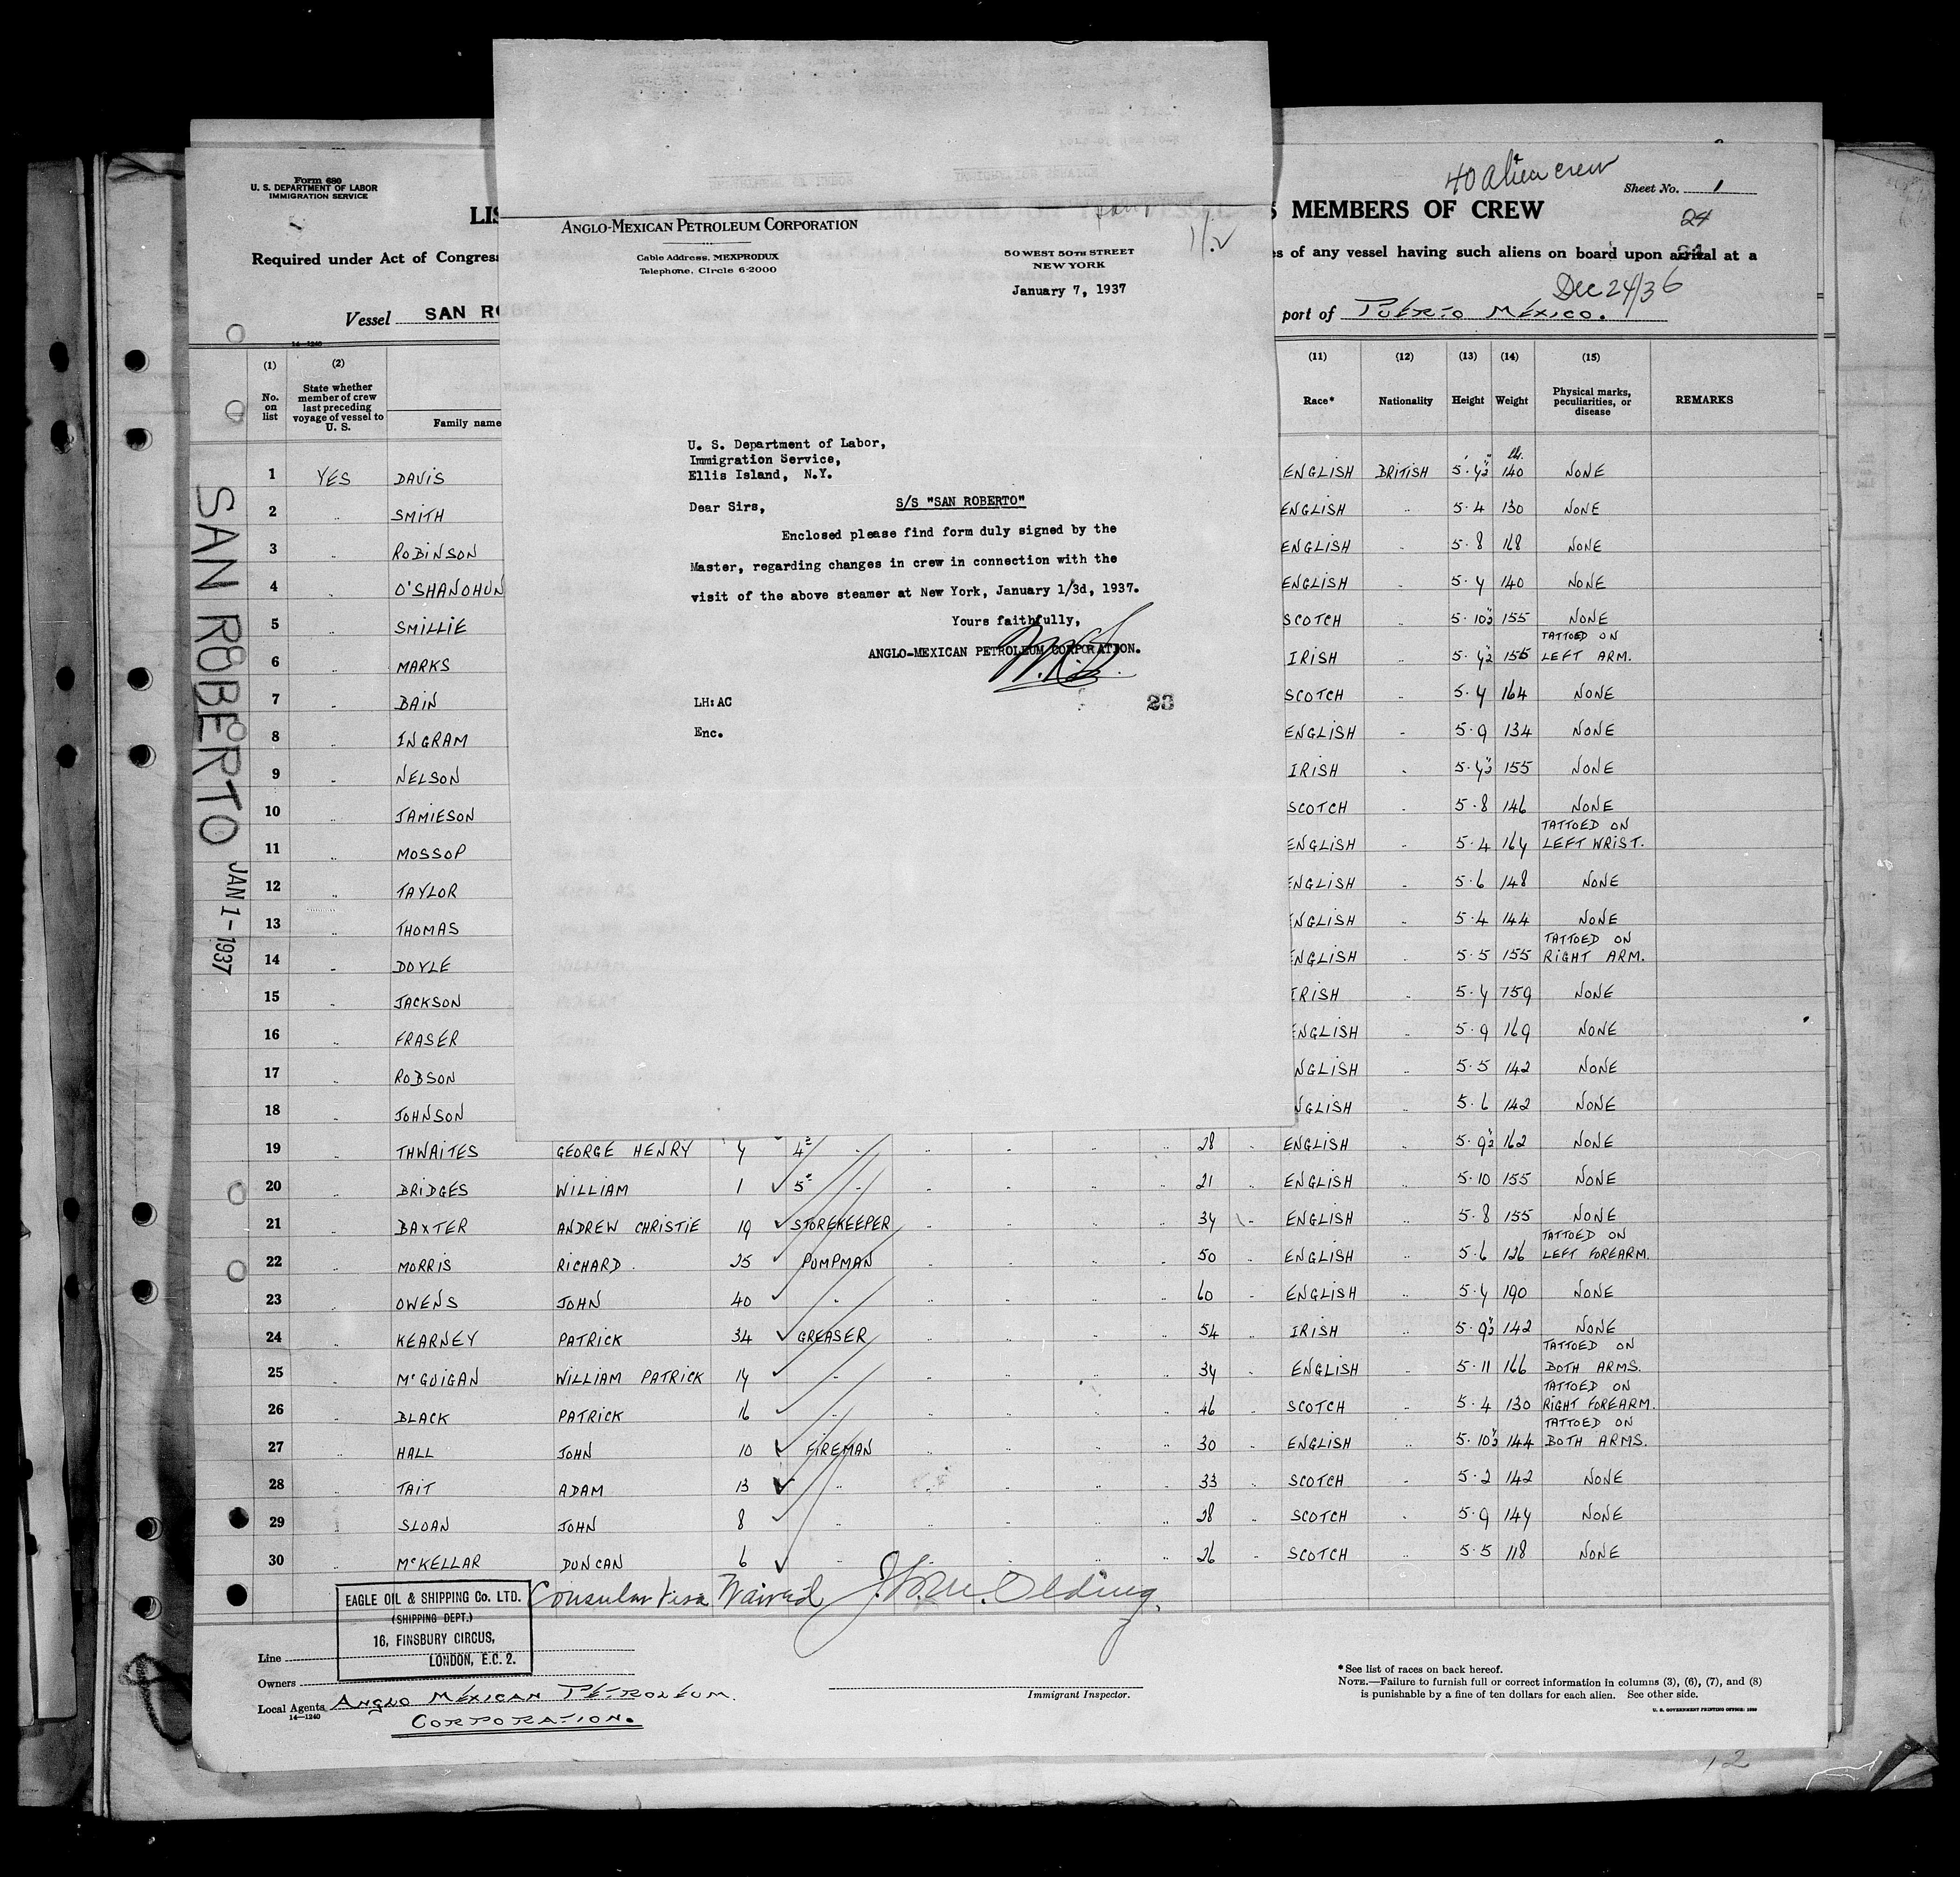 40 alien crew
Form 680
U. S. DEPARTMENT OF LABOR
IMMIGRATION SERVICE
Sheet No. 1
LIS
S MEMBERS OF CREW
24
Required under Act of Congress
es of any vessel having such aliens on board upon arrival at a
Dec 24/36
Vessel SAN RO
port of PUERTO MEXICO.
ANGLO-MEXICAN PETROLEUM CORPORATION
Cable Address, MEXPRODUX
Telephone, CIrcle 6-2000
50 WEST 50TH STREET
NEW YORK
January 7, 1937
U. S. Department of Labor,
Immigration Service,
Ellis Island, N.Y.
Dear Sirs,
S/S "SAN ROBERTO"
Enclosed please find form duly signed by the
Master, regarding changes in crew in connection with the
visit of the above steamer at New York, January 1/3d, 1937.
Yours faithfully,
ANGLO-MEXICAN PETROLEUM CORPORATION.
LH:AC
23
Enc.
SAN ROBERTO JAN 1-1937
14—1240
(1) (2) (11) (12) (13) (14) (15)
No. on list
State whether member of crew last preceding voyage of vessel to U. S.
Family name
Race*
Nationality
Height
Weight
Physical marks, peculiarities, or disease
REMARKS
1 YES DAVIS ENGLISH BRITISH 5·4½ 140 NONE
2 " SMITH ENGLISH " 5·4 130 NONE
3 " ROBINSON ENGLISH " 5·8 168 NONE
4 " O'SHANOHUN ENGLISH " 5·4 140 NONE
5 " SMILLIE SCOTCH " 5·10½ 155 NONE
6 " MARKS IRISH " 5·4½ 155 TATTOED ON LEFT ARM.
7 " BAIN SCOTCH " 5·4 164 NONE
8 " INGRAM ENGLISH " 5·9 134 NONE
9 " NELSON IRISH " 5·4½ 155 NONE
10 " JAMIESON SCOTCH " 5·8 146 NONE
11 " MOSSOP ENGLISH " 5·4 164 TATTOED ON LEFT WRIST.
12 " TAYLOR ENGLISH " 5·6 148 NONE
13 " THOMAS ENGLISH " 5·4 144 NONE
14 " DOYLE ENGLISH " 5·5 155 TATTOED ON RIGHT ARM.
15 " JACKSON IRISH " 5·4 159 NONE
16 " FRASER ENGLISH " 5·9 169 NONE
17 " ROBSON NGLISH " 5·5 142 NONE
18 " JOHNSON NGLISH " 5·6 142 NONE
19 " THWAITES GEORGE HENRY 4 4" " " " " " 28 " ENGLISH " 5·9½ 162 NONE
20 " BRIDGES WILLIAM 1 5" " " " " " 21 " ENGLISH " 5·10 155 NONE
21 " BAXTER ANDREW CHRISTIE 19 STOREKEEPER " " " " 34 " ENGLISH " 5·8 155 NONE
22 " MORRIS RICHARD. 25 PUMPMAN " " " " 50 " ENGLISH " 5·6 126 TATTOED ON LEFT FOREARM.
23 " OWENS JOHN 40 " " " " " 60 " ENGLISH " 5·4 190 NONE
24 " KEARNEY PATRICK 34 GREASER " " " " 54 " IRISH " 5·9½ 142 NONE
25 " McGUIGAN WILLIAM PATRICK 14 " " " " " 34 " ENGLISH " 5·11 166 TATTOED ON BOTH ARMS.
26 " BLACK PATRICK 16 " " " " " 46 " SCOTCH " 5·4 130 TATTOED ON RIGHT FOREARM.
27 " HALL JOHN 10 FIREMAN " " " " 30 " ENGLISH " 5·10½ 144 TATTOED ON BOTH ARMS.
28 " TAIT ADAM 13 " " " " " 33 " SCOTCH " 5·2 142 NONE
29 " SLOAN JOHN 8 " " " " " 28 " SCOTCH " 5·9 144 NONE
30 " McKELLAR DUNCAN 6 " " " " " 26 " SCOTCH " 5·5 118 NONE
Consular Visa Waived
EAGLE OIL & SHIPPING Co. LTD.
(SHIPPING DEPT.)
16, FINSBURY CIRCUS,
LONDON, E.C. 2.
Line
Owners
Local Agents ANGLO MEXICAN PETROLEUM
CORPORATION.
14—1240
Immigrant Inspector.
*See list of races on back hereof.
NOTE.—Failure to furnish full or correct information in columns (3), (6), (7), and (8)
is punishable by a fine of ten dollars for each alien. See other side.
12